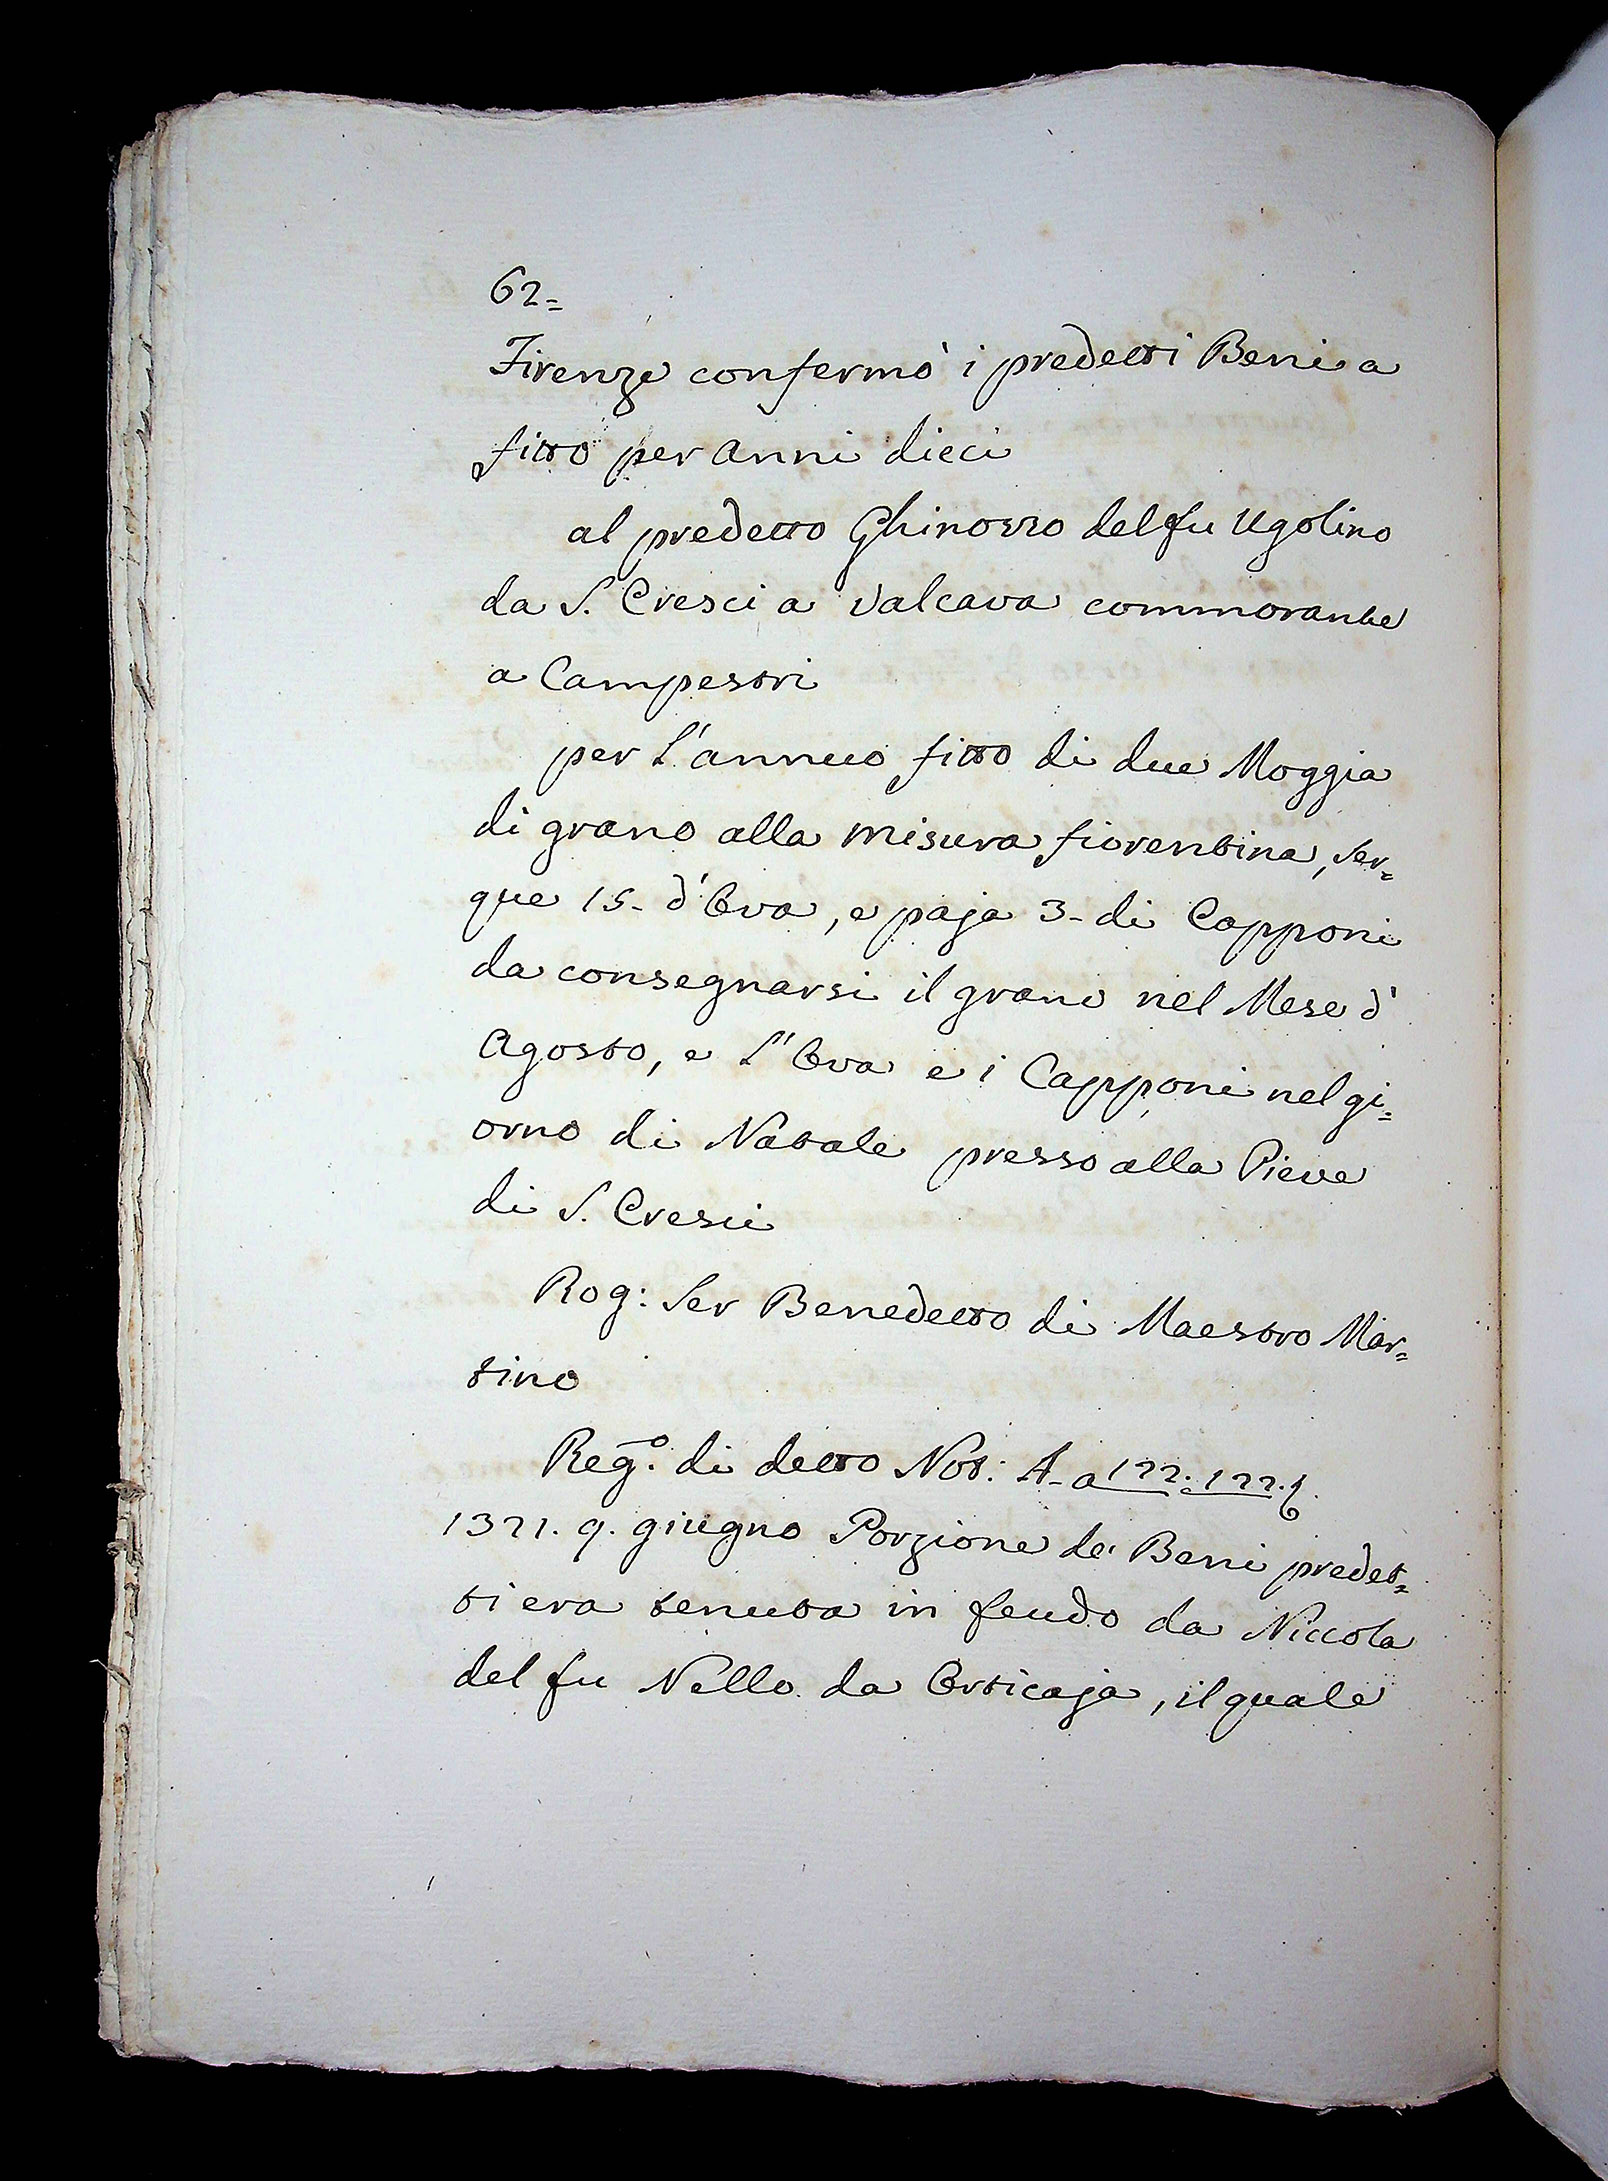 62=
Firenze confermò i predetti Beni a
fitto per anni dieci
al predetto Ghinozzo del fu Ugolino
da S. Cresci a Valcava commorante
a Campestri
per l'annuo fitto di due Moggia
di grano alla misura fiorentina, Ser=
que 15- d'Ova, e paja 3- di Capponi
da consegnarsi il grano nel Mese d'
Agosto, e l'Ova e i Capponi nel gi=
orno di Natale presso alla Pieve
di S. Cresci
Rog: Ser Benedetto di Maestro Mar=
tino
Reg.º di detto Not: A- a 122. 122.t.
1321. 9. giugno Porzione de' Beni predet=
ti era tenuta in feudo da Niccola
del fu Nello da Orticaja, il quale